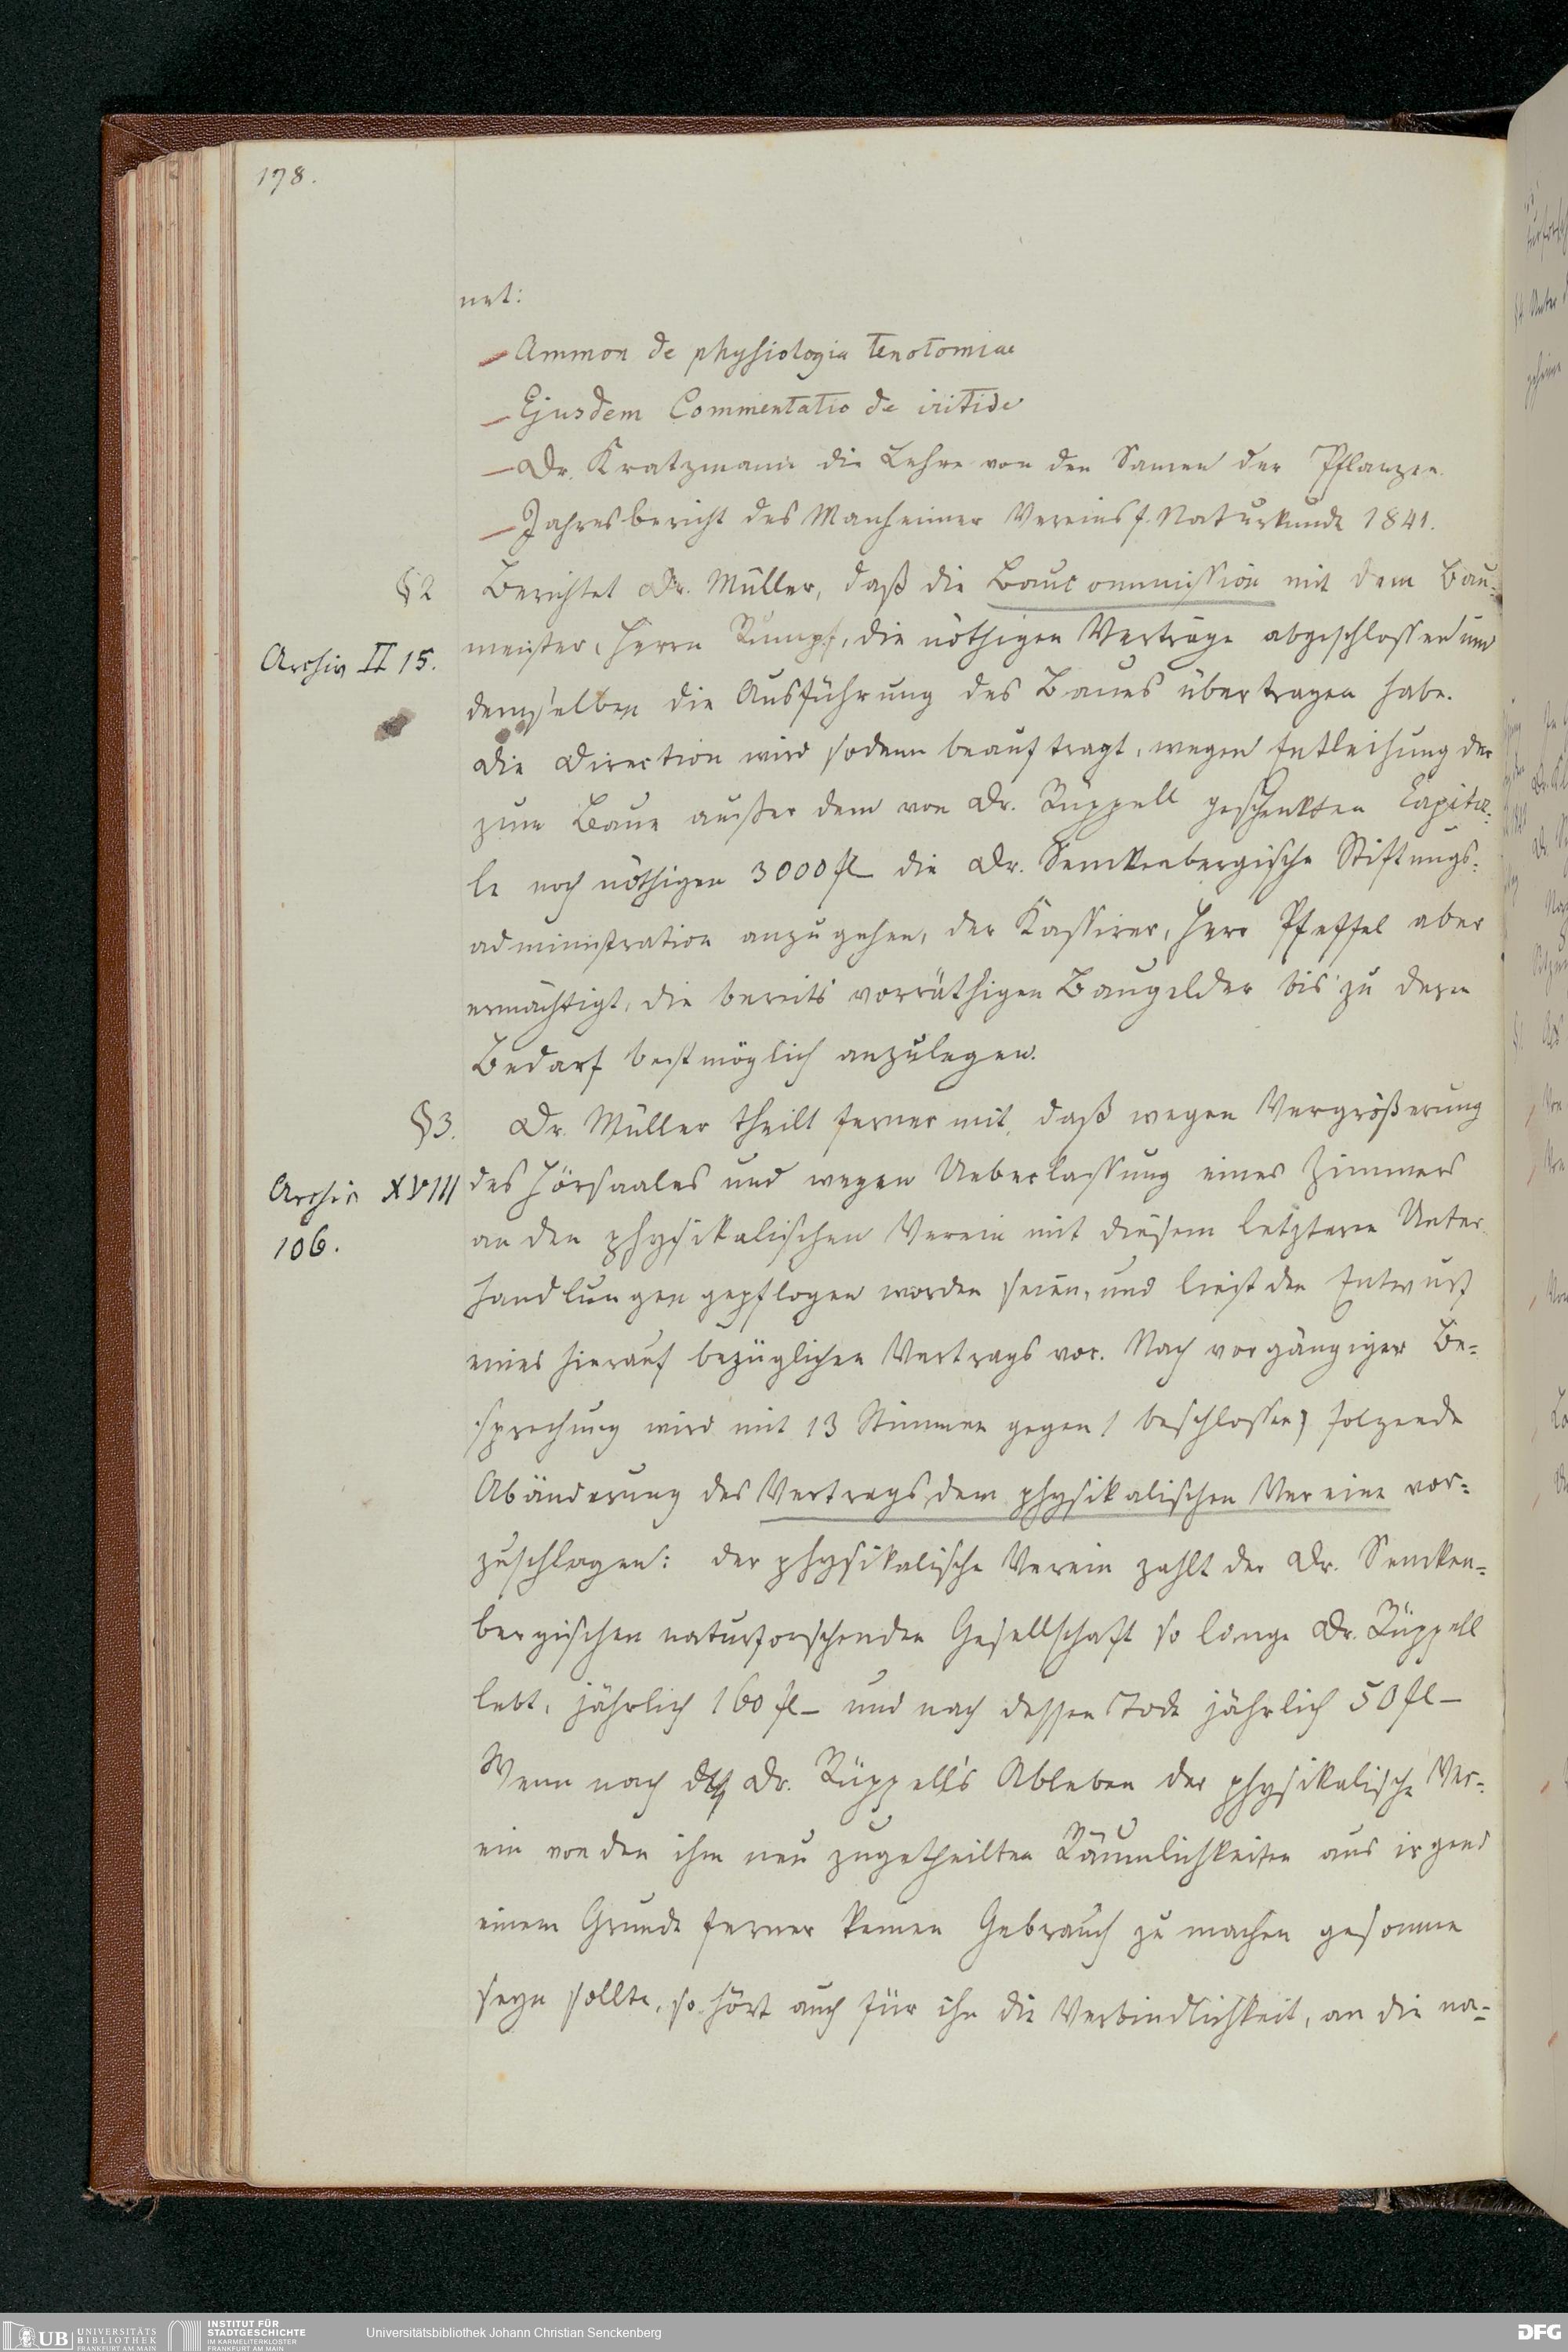 178.
net:
– Ammon de physiologia tenotomiae
– Ejusdem Commentatio de iritide
– Dr. Kratzmann die Lehre von den Samen der Pflanzen
– Jahresbericht des Manheimer Vereins f. Naturkunde 1841.
§2 Berichtet Dr. Müller, daß die Baucommission mit dem Bau-
Archiv II 15. meister, Herrn Rumpf, die nöthigen Verträge abgeschlossen und
demselben die Ausführung des Baues übertragen habe.
Die Direction wird sodann beauftragt, wegen Entleihung der
zum Baue außer dem von Dr. Rüppell geschenkten Capita-
le noch nöthigen 3000 fl – die Dr. Senckenbergische Stiftungs-
administration anzugehen, der Kassirer, Herr Pfeffel aber
ermächtigt, die bereits vorräthigen Baugelder bis zu deren
Bedarf bestmöglich anzulegen.
§3. Dr. Müller theilt ferner mit, daß wegen Vergrößerung
Archiv XVIII des Hörsaales und wegen Ueberlassung eines Zimmers
106. an den physikalischen Verein mit diesem letzteren Unter-
handlungen gepflogen worden seien, und liest den Entwurf
eines hierauf bezüglichen Vertrags vor. Nach vorgängiger Be-
sprechung wird mit 13 Stimmen gegen 1 beschlossen, folgende
Abänderung des Vertrags dem physikalischen Vereine vor-
zuschlagen: der physikalische Verein zahlt der Dr. Sencken-
bergischen naturforschenden Gesellschaft so lange Dr. Rüppell
lebt, jährlich 160 fl – und nach dessen Tode jährlich 50 fl –
Wenn nach Dr. Rüppell's Ableben der physikalische Ver-
ein von den ihm neu zugetheilten Räumlichkeiten aus irgend
einem Grunde ferner keinen Gebrauch zu machen gesonnen
seyn sollte, so hört auch für ihn die Verbindlichkeit, an die na-
UB UNIVERSITÄTS BIBLIOTHEK FRANKFURT AM MAIN
INSTITUT FÜR STADTGESCHICHTE IM KARMELITERKLOSTER FRANKFURT AM MAIN
Universitätsbibliothek Johann Christian Senckenberg
DFG